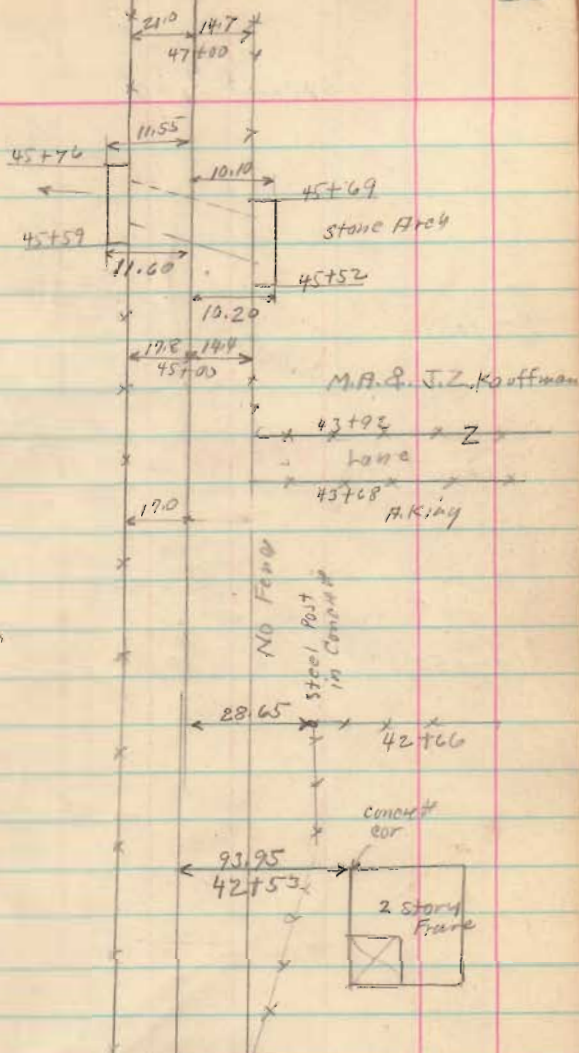 21.0 14.7
47+00
11.55
45+76
10.10
45+69
Stone Arch
45+59
11.60
45+52
10.20
17.8 14.4
45+00
M.A. & J.Z. Kauffman
43+92
Z
Lane
43+68
A. King
17.0
No Fence
Steel Post
in Concrete
28.65
42+66
concrete
cor
93.95
42+53
2 Story
Frame